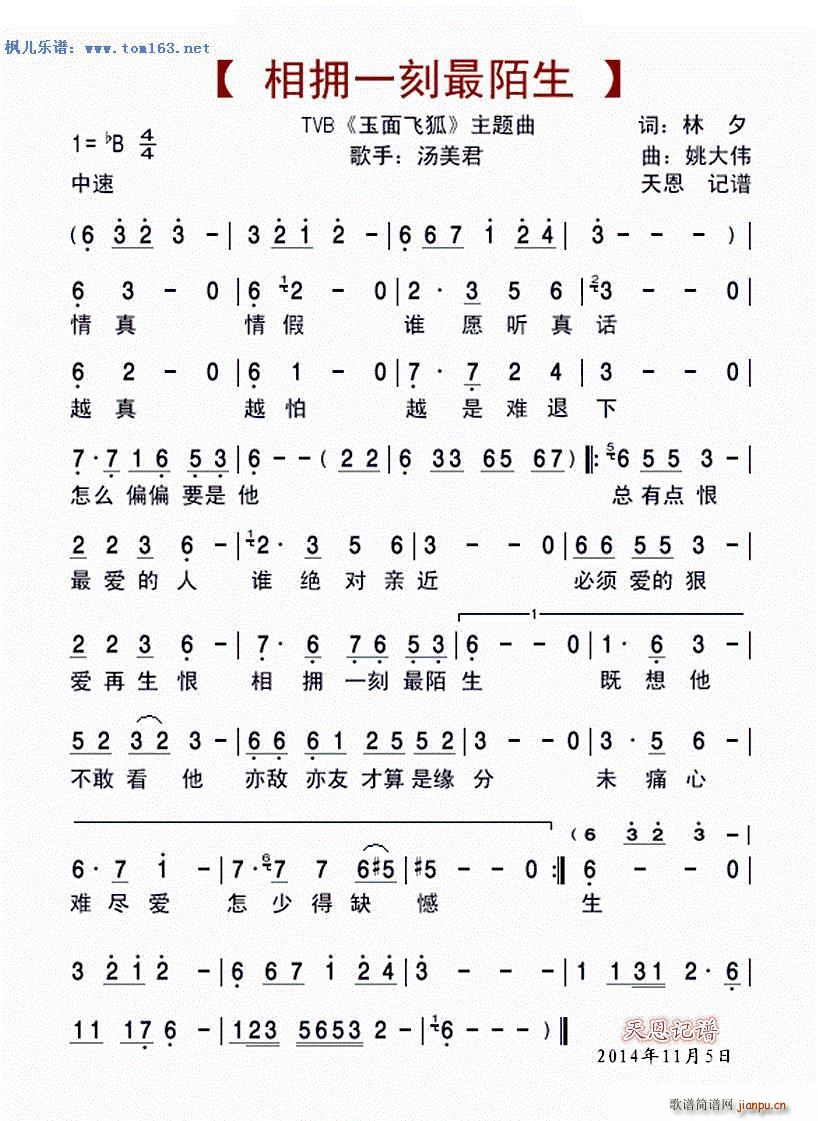 枫儿乐谱：www.tom163.net
【 相拥一刻最陌生 】
TVB《玉面飞狐》主题曲 词：林 夕
1=♭B 4/4 歌手：汤美君 曲：姚大伟
中速 天恩 记谱
(6 3 2 3 -| 3 2 1 2 -| 6 6 7 1 2 4| 3 - - - )|
6 3 - 0| 6 1 2 - 0| 2· 3 5 6| 2 3 - - 0|
情真 情假 谁 愿听真话
6 2 - 0| 6 1 - 0| 7· 7 2 4| 3 - - 0|
越真 越怕 越 是难退下
7· 7 1 6 5 5| 6 - - ( 2 2 | 6 3 3 6 5 6 7) ‖: 5 6 5 5 3 -|
怎么 偏偏 要是 他 总有点恨
2 2 3 6 -| 1 2· 3 5 6| 3 - - 0| 6 6 5 5 3 -|
最爱的人 谁 绝对亲近 必须爱的狠
1
2 2 3 6 -| 7· 6 7 6 5 3| 6 - - 0| 1· 6 3 -|
爱再生恨 相 拥 一刻 最陌 生 既 想他
5 2 3 2 3 -| 6 6 6 1 2 5 5 2| 3 - - 0| 3· 5 6 -|
不敢看 他 亦敌 亦友 才算是缘 分 未 痛心
(6 3 2 3 -|
6· 7 1 -| 7· 6 7 7 6 #5| #5 - - 0 :‖ 6 - - 0|
难尽爱 怎 少得缺 憾 生
3 2 1 2 -| 6 6 7 1 2 4| 3 - - -| 1 1 3 1 2· 6|
1 1 1 7 6 -| 1 2 3 5 6 5 3 2 -| 1 6 - - -)‖ 天恩记谱
2014年11月5日
歌谱简谱网 jianpu.cn